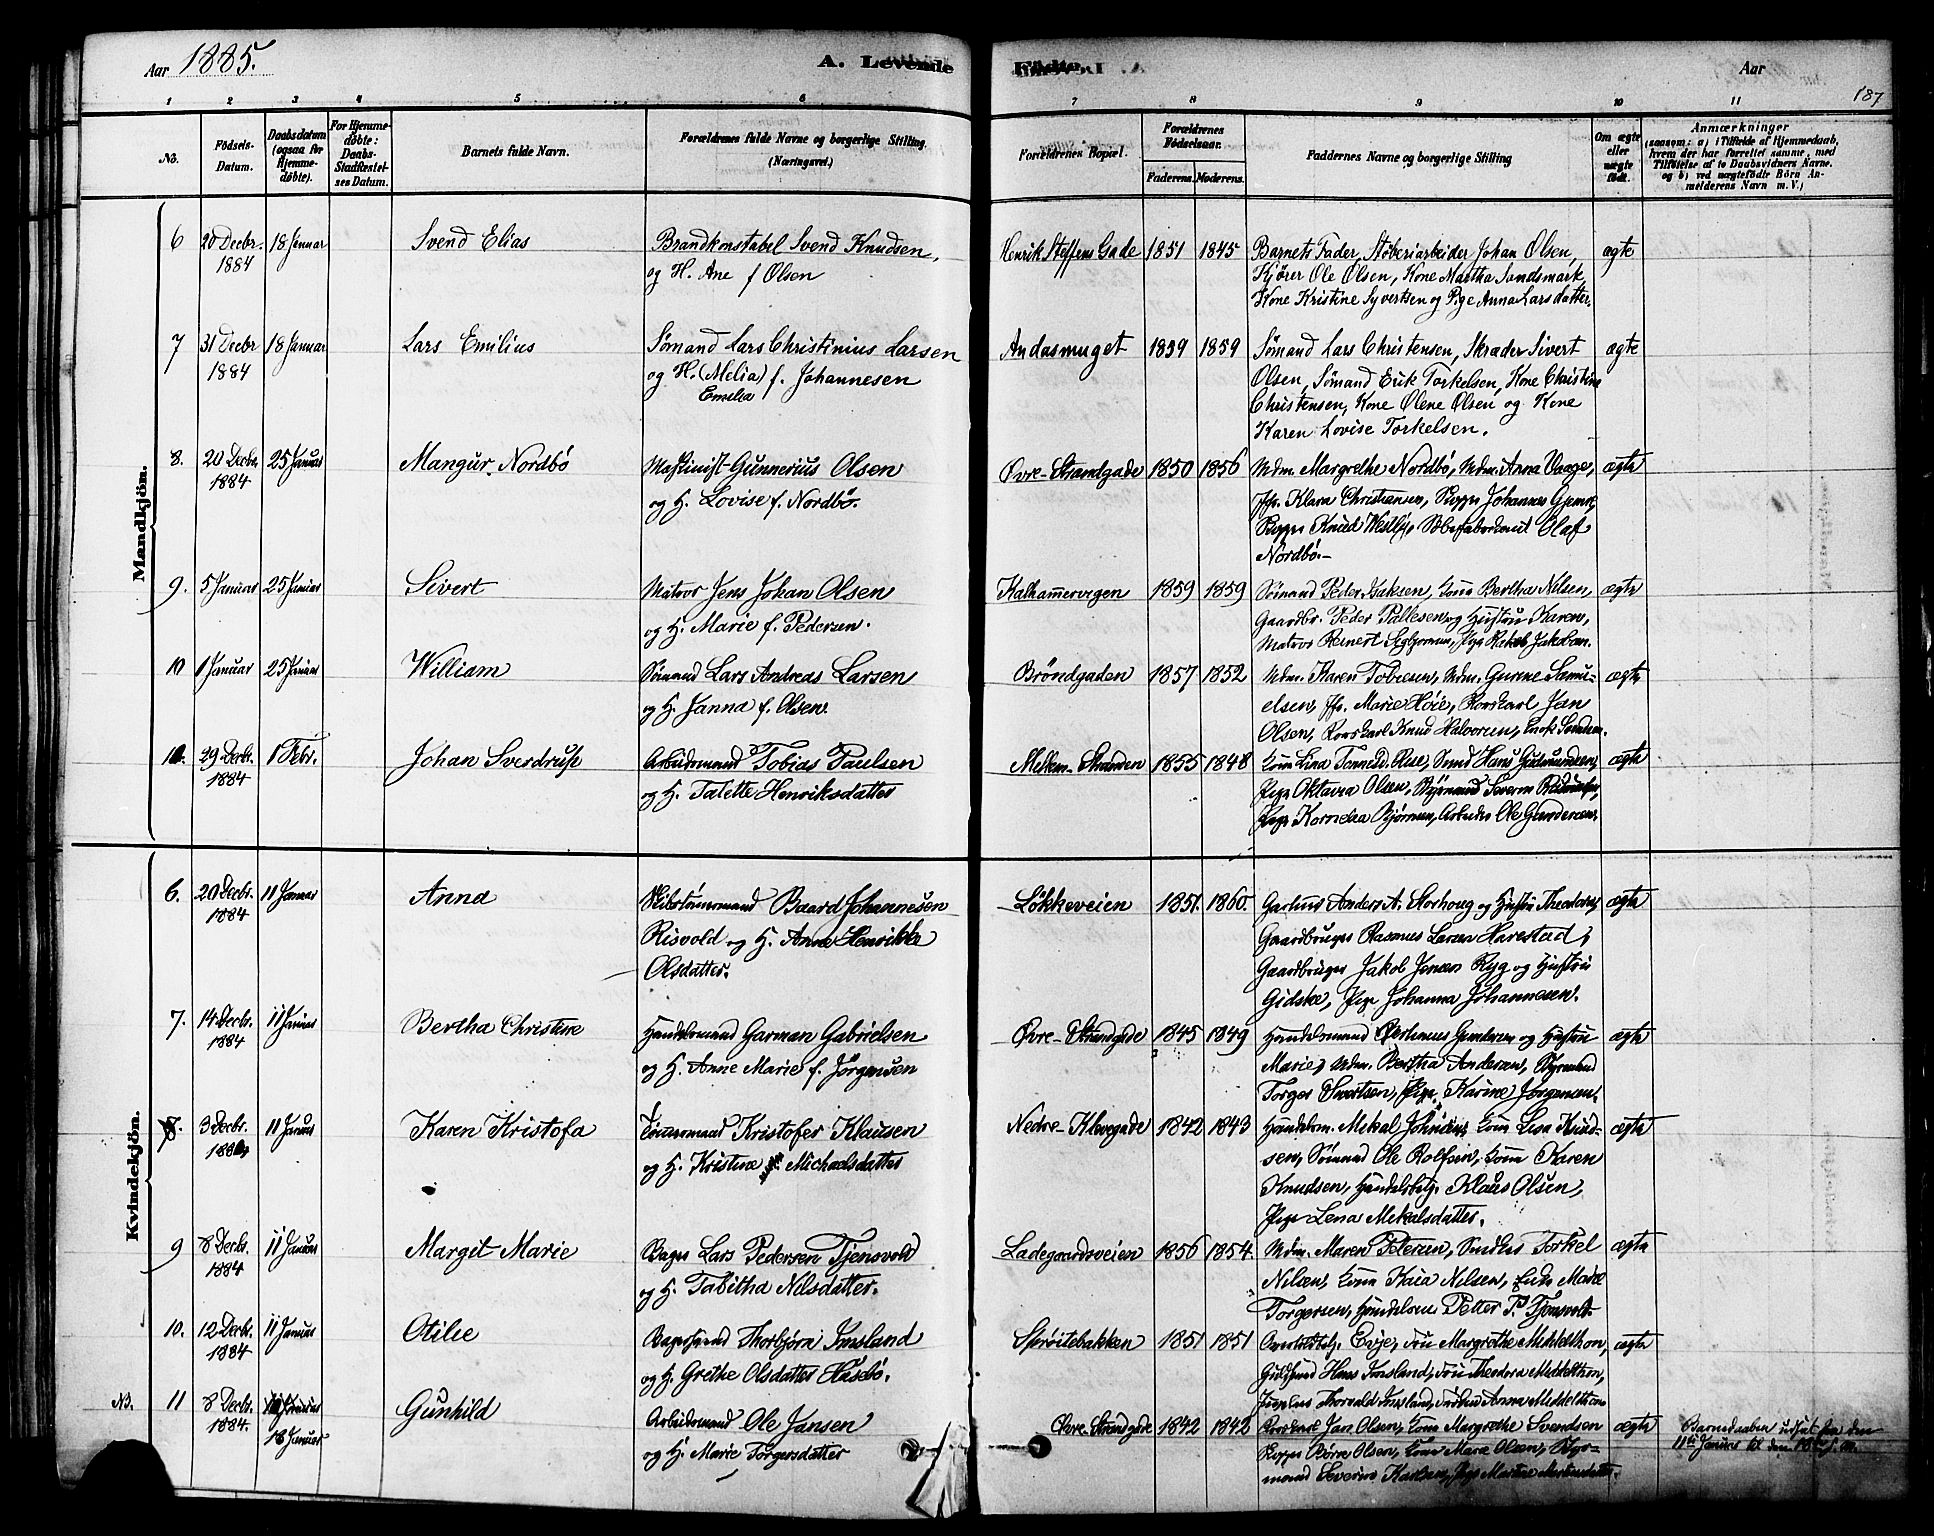 Aar 1885. A. Levende Fødte. Aar 187
1 2 3 4 5 6 7 8 9 10 11
No. Fødsels-Datum. Daabsdatum (ogsaa for Hjemmedøbte). For Hjemmedøbte: Daabs-Stadfæstelses Datum. Barnets fulde Navn. Forældrenes fulde Navne og borgerlige Stilling. (Næringsvei.) Forældrenes Bopæl. Forældrenes Fødselsaar. Faderens. Moderens. Faddernes Navne og borgerlige Stilling Om ægte eller uægte født. Anmærkninger (saasom: a) i Tilfælde af Hjemmedaab, hvem der har forrettet samme, med Tilføielse af to Daabsvidners Navne. og b) ved uægtefødte Børn Anmelderens Navn m. V.)
Mandkjön.
6 20 Decbr. 18 Januar Svend Elias Brandkonstabel Svend Knudsen, Henrik Steffens Gade 1851 1845 Barnets Fader, Støberiarbeider Johan Olsen, ægte
1884 og H. Ane f Olsen Kjører Ole Olsen, Kone Martha Sandsmark,
Kone Kristine Syvertsen og Pige Anna Larsdatter.
7 31 Decbr 18 Januar Lars Emilius Sømand Lars Christinius Larsen Andasmuget 1859 1859 Sømand Lars Christensen, Skræder Sivert ægte
1884 og H. (Melia) f. Johannesen Olsen, Sømand Erik Torkelsen, Kone Christine
Emelia Christensen, Kone Olene Olsen og Kone
Karen Lovise Torkelsen.
8. 20 Decbr. 25 Januar Mangur Nordbö Maskinist Gunnerius Olsen Øvre-Strandgade 1850 1856 Mdm. Margrethe Nordbö, Mdm. Anna Vaage, ægte
1884 og H. Lovise f. Nordbö. Jfr. Klara Christensen, Johannes
Knud Olaf
Nordbö.
9. 5 Januar 25 Januar Sivert Matros Jens Johan Olsen Kalhammervigen 1859 1859 Sömand Peder Isaksen, Kone Bertha Nilsen, ægte
og H. Marie f. Pedersen. Gaardbr. Peder Pallesen og Hustru Karen,
Matros Reinert Pige Jakobsen.
10 1 Januar 25 Januar William Sömand Lars Andreas Larsen Bröndgaden 1857 1852 Mdm. Karen Tobiesen, Mdm. Gurine Samu- ægte
og H. Janna f. Olsen. elsen, Jfr. Marie Höie, Jan
Olsen, Knud Halvorsen,
29 Decbr. 1 Febr. Johan Sverdrup Arbeidsmand Tobias Paulsen Melkem-Stranden 1855 1848 Kone Lina Hans Gudmundsen, ægte
1884 og H. Talette Henriksdatter Pige Oktavia Olsen, Severin
Pige Kornelia Björnsen, Arbeider Ole Gundersen.
Kvindekjön.
6. 20 Decbr. 11 Januar Anna Baard Johannesen Lökkeveien 1851. 1860. Anders A. Storhoug og Hustru Theodora, ægte
1884 Risvold og H. Anne Henrikke Gaardbruger Rasmus Larsen Harestad,
Olsdatter. Gaardbruger Jakob Jensen Ryg og Hustru
Gidske, Pige Johanna Johannesen.
7. 14 Decbr. 11 Januar Bertha Christine Handelsmand Garman Gabrielsen Øvre-Strandgade 1845 1849 Handelsmand Gundersen og Hustru ægte
1884 og H. Anne Marie f. Jörgensen Marie, Mdm. Bertha Andersen, Styrmand
Torger Sivertsen, Pige Karine Jörgensen.
8. 3 Decbr. 11 Januar Karen Kristofa Kristofer Klausen Nedre-Klevegade 1842 1843 Handelsm. Mikal Johnsen, Kone Lisa Knud- ægte
og H. Kristine Michaelsdatter sen, Sömand Ole Rolfsen, Kone Karen
Knudsen, Handelsbetj. Klaus Olsen,
Pige Lena Mikalsdatter.
9 8 Decbr. 11 Januar Margit Marie Bager Lars Pedersen Tjensvold Ladegaardsveien 1856 1854. Mdm. Maren Petersen, Torkel ægte
1884 og H. Tabitha Nilsdatter. Nilsen, Kone Kaia Nilsen, Enke Marie
Torgersen, Handelsm. Petter P. Tjensvold.
10. 12 Decbr. 11 Januar Otilie Bagersvend Thorbjörn Imsland Spröitebakken 1851 1851 Evje, Fru Margrethe Middelthon, ægte
1884 og H. Grethe Olsdatter Husebö. Guldsmed Hans Imsland, Fru Theodora Middelthon,
Thorvald Imsland, Fröken Anna Middelthon
NB. 11 8 Decbr. Gunhild Arbeidsmand Ole Jansen Øvre-Strandgade 1842 1842 Jan Olsen, Kone Margrethe Svendsen ægte Barnedaaben udsat fra den
1884. 18 Januar og H. Marie Torgersdatter Börre Olsen, Kone Marie Olsen, Styr- 11te Januar til den 18de s. m.
mand Severin Karlsen, Pige Martine